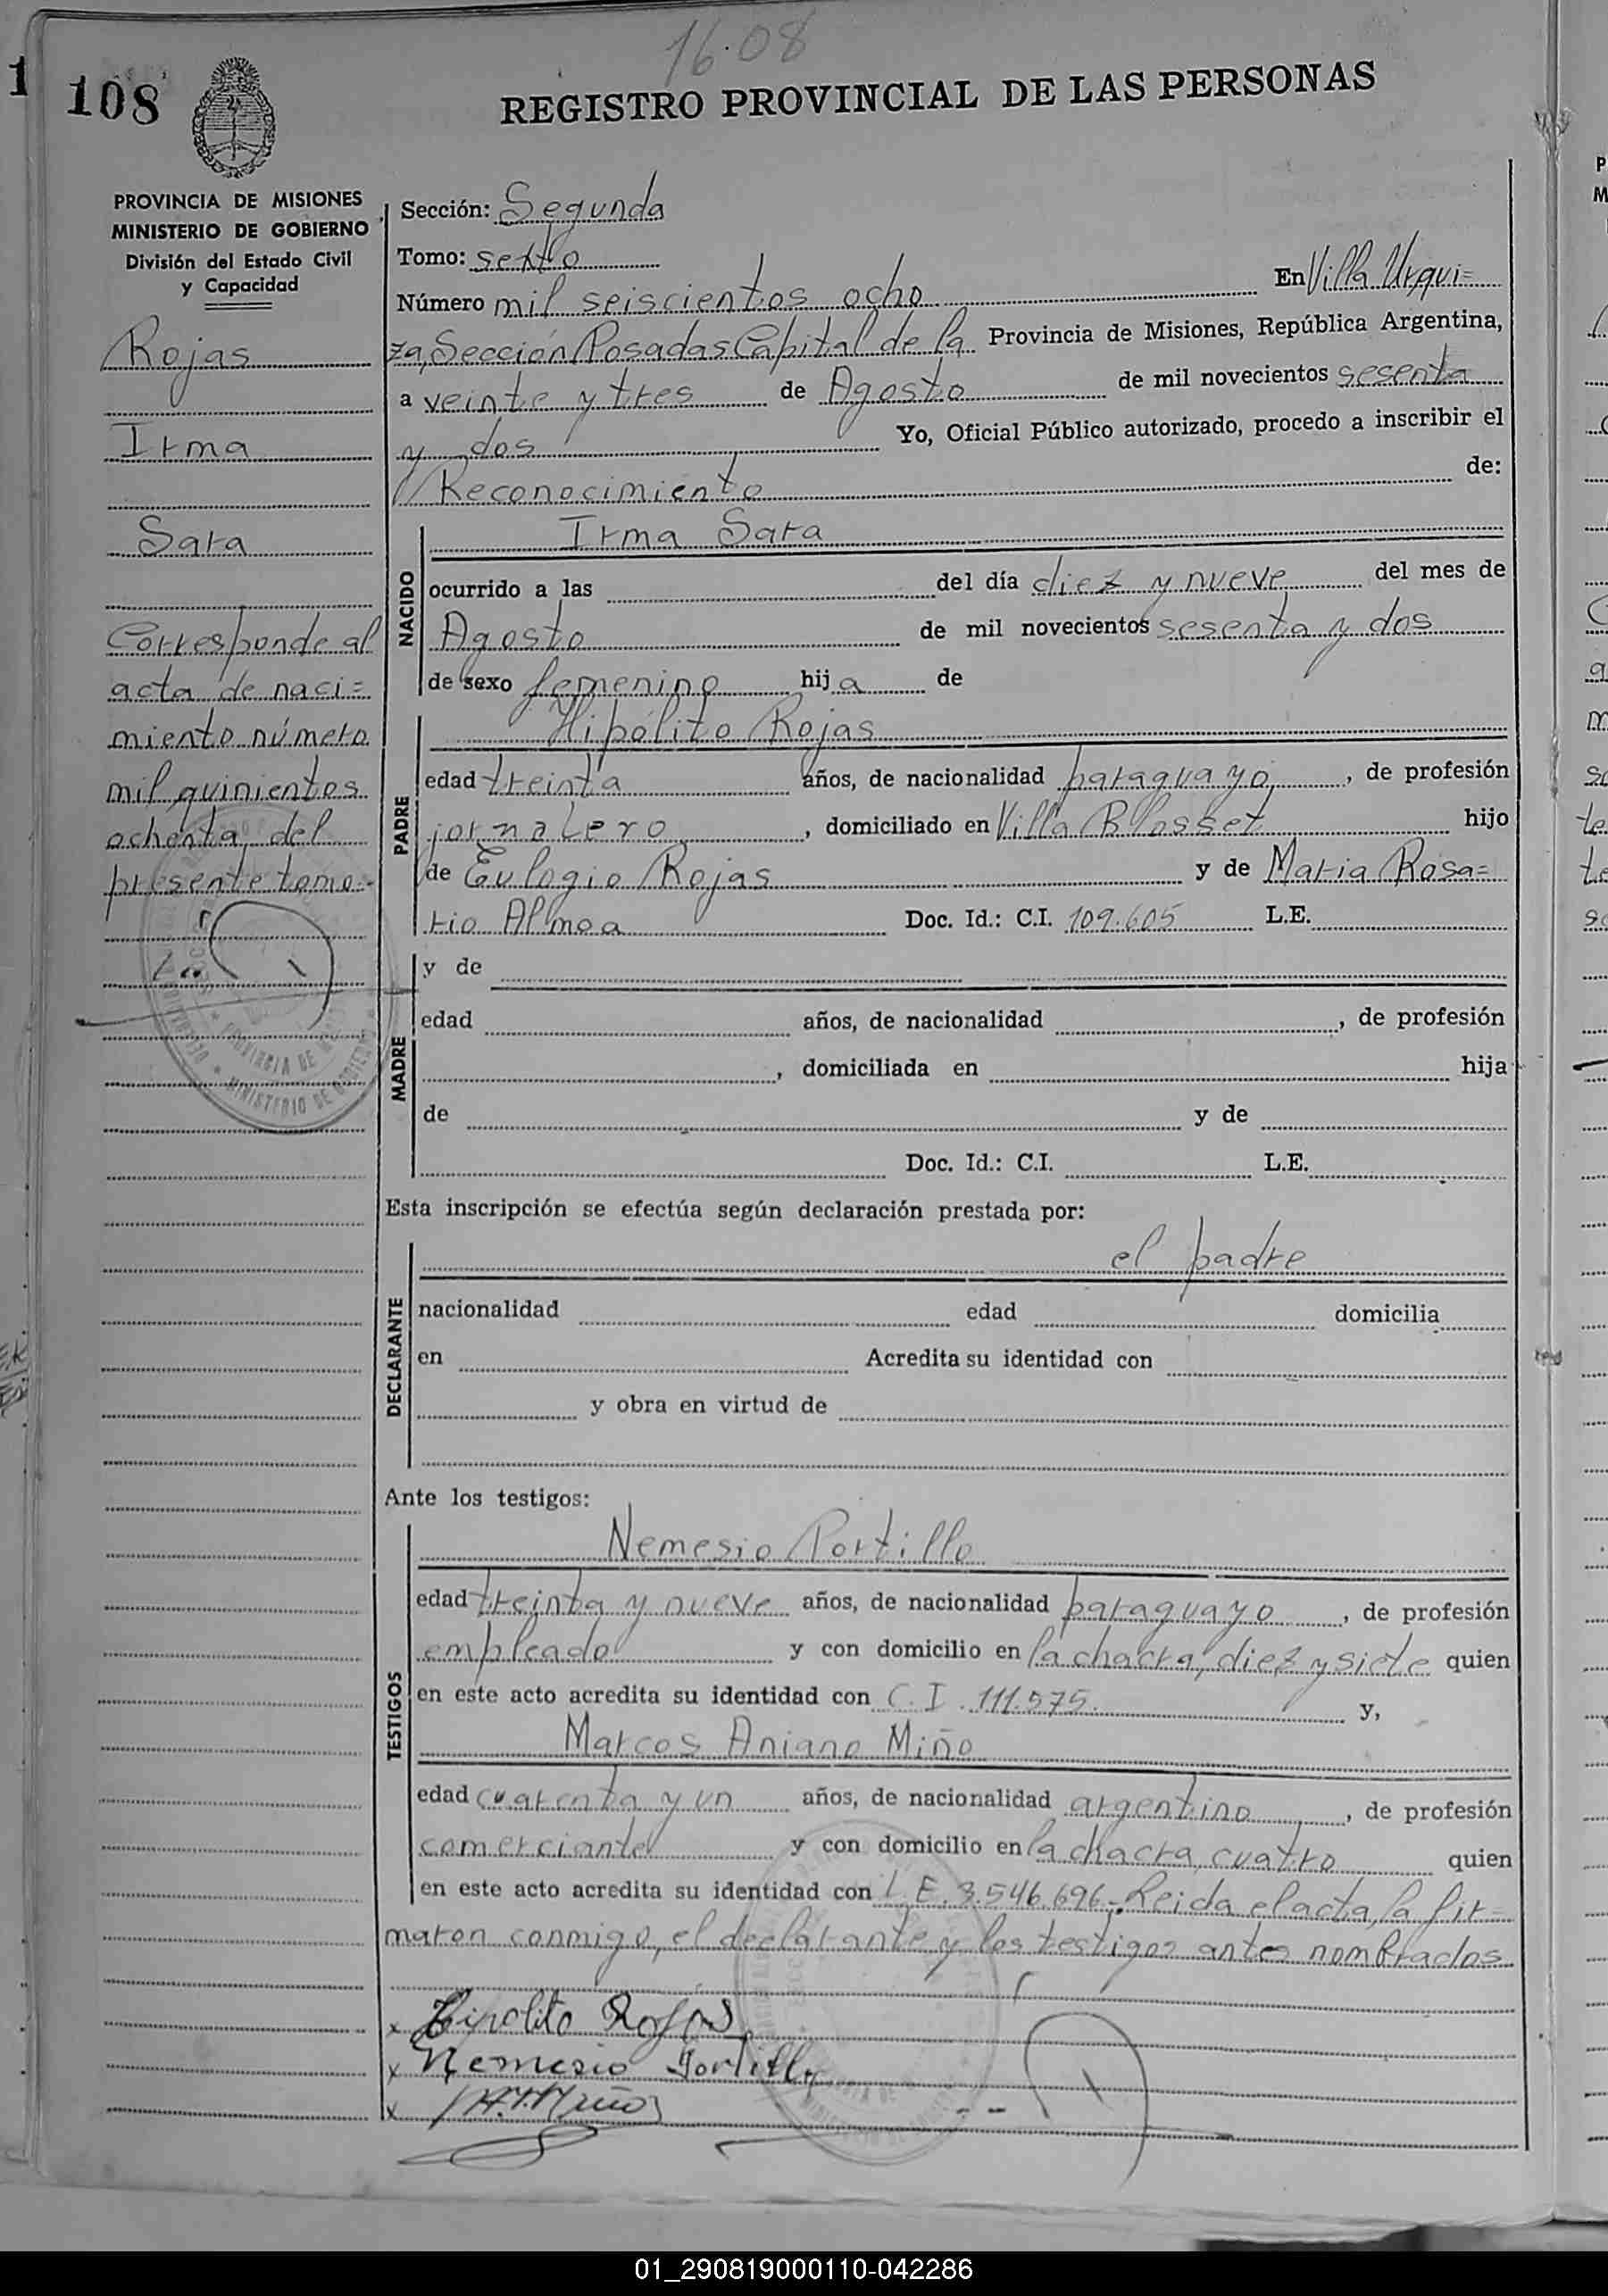 16.08
108
REGISTRO PROVINCIAL DE LAS PERSONAS
PROVINCIA DE MISIONES
MINISTERIO DE GOBIERNO
División del Estado Civil
y Capacidad
Rojas
Irma
Sara
Corresponde al
acta de naci=
miento número
mil quinientos
ochenta, del
presente tomo.-
Sección: Segunda
Tomo: sexto
Número mil seiscientos ocho En Villa Urqui=
za, Sección Posadas Capital de la Provincia de Misiones, República Argentina,
a veinte y tres de Agosto de mil novecientos sesenta
y dos Yo, Oficial Público autorizado, procedo a inscribir el
Reconocimiento de:
NACIDO
Irma Sara
ocurrido a las del día diez y nueve del mes de
Agosto de mil novecientos sesenta y dos
de sexo femenino hija de
PADRE
Hipólito Rojas
edad treinta años, de nacionalidad paraguayo, de profesión
jornalero, domiciliado en Villa Blosset hijo
de Eulogio Rojas y de Maria Rosa=
rio Almoa Doc. Id.: C.I. 109.605 L.E.
MADRE
y de
edad años, de nacionalidad , de profesión
, domiciliada en hija
de y de
Doc. Id.: C.I. L.E.
Esta inscripción se efectúa según declaración prestada por:
DECLARANTE
el padre
nacionalidad edad domicilia
en Acredita su identidad con
y obra en virtud de
Ante los testigos:
TESTIGOS
Nemesio Portillo
edad treinta y nueve años, de nacionalidad paraguayo, de profesión
empleado y con domicilio en la chacra, diez y siete quien
en este acto acredita su identidad con C.I. 111.575. y,
Marcos Aniano Miño
edad cuarenta y un años, de nacionalidad argentino, de profesión
comerciante y con domicilio en la chacra, cuatro quien
en este acto acredita su identidad con L.E. 3.546.696.- Leida el acta, la fir=
maron conmigo, el declarante y los testigos antes nombrados
x Hipolito Rojas
x Nemesio Portillo
x
01_290819000110-042286